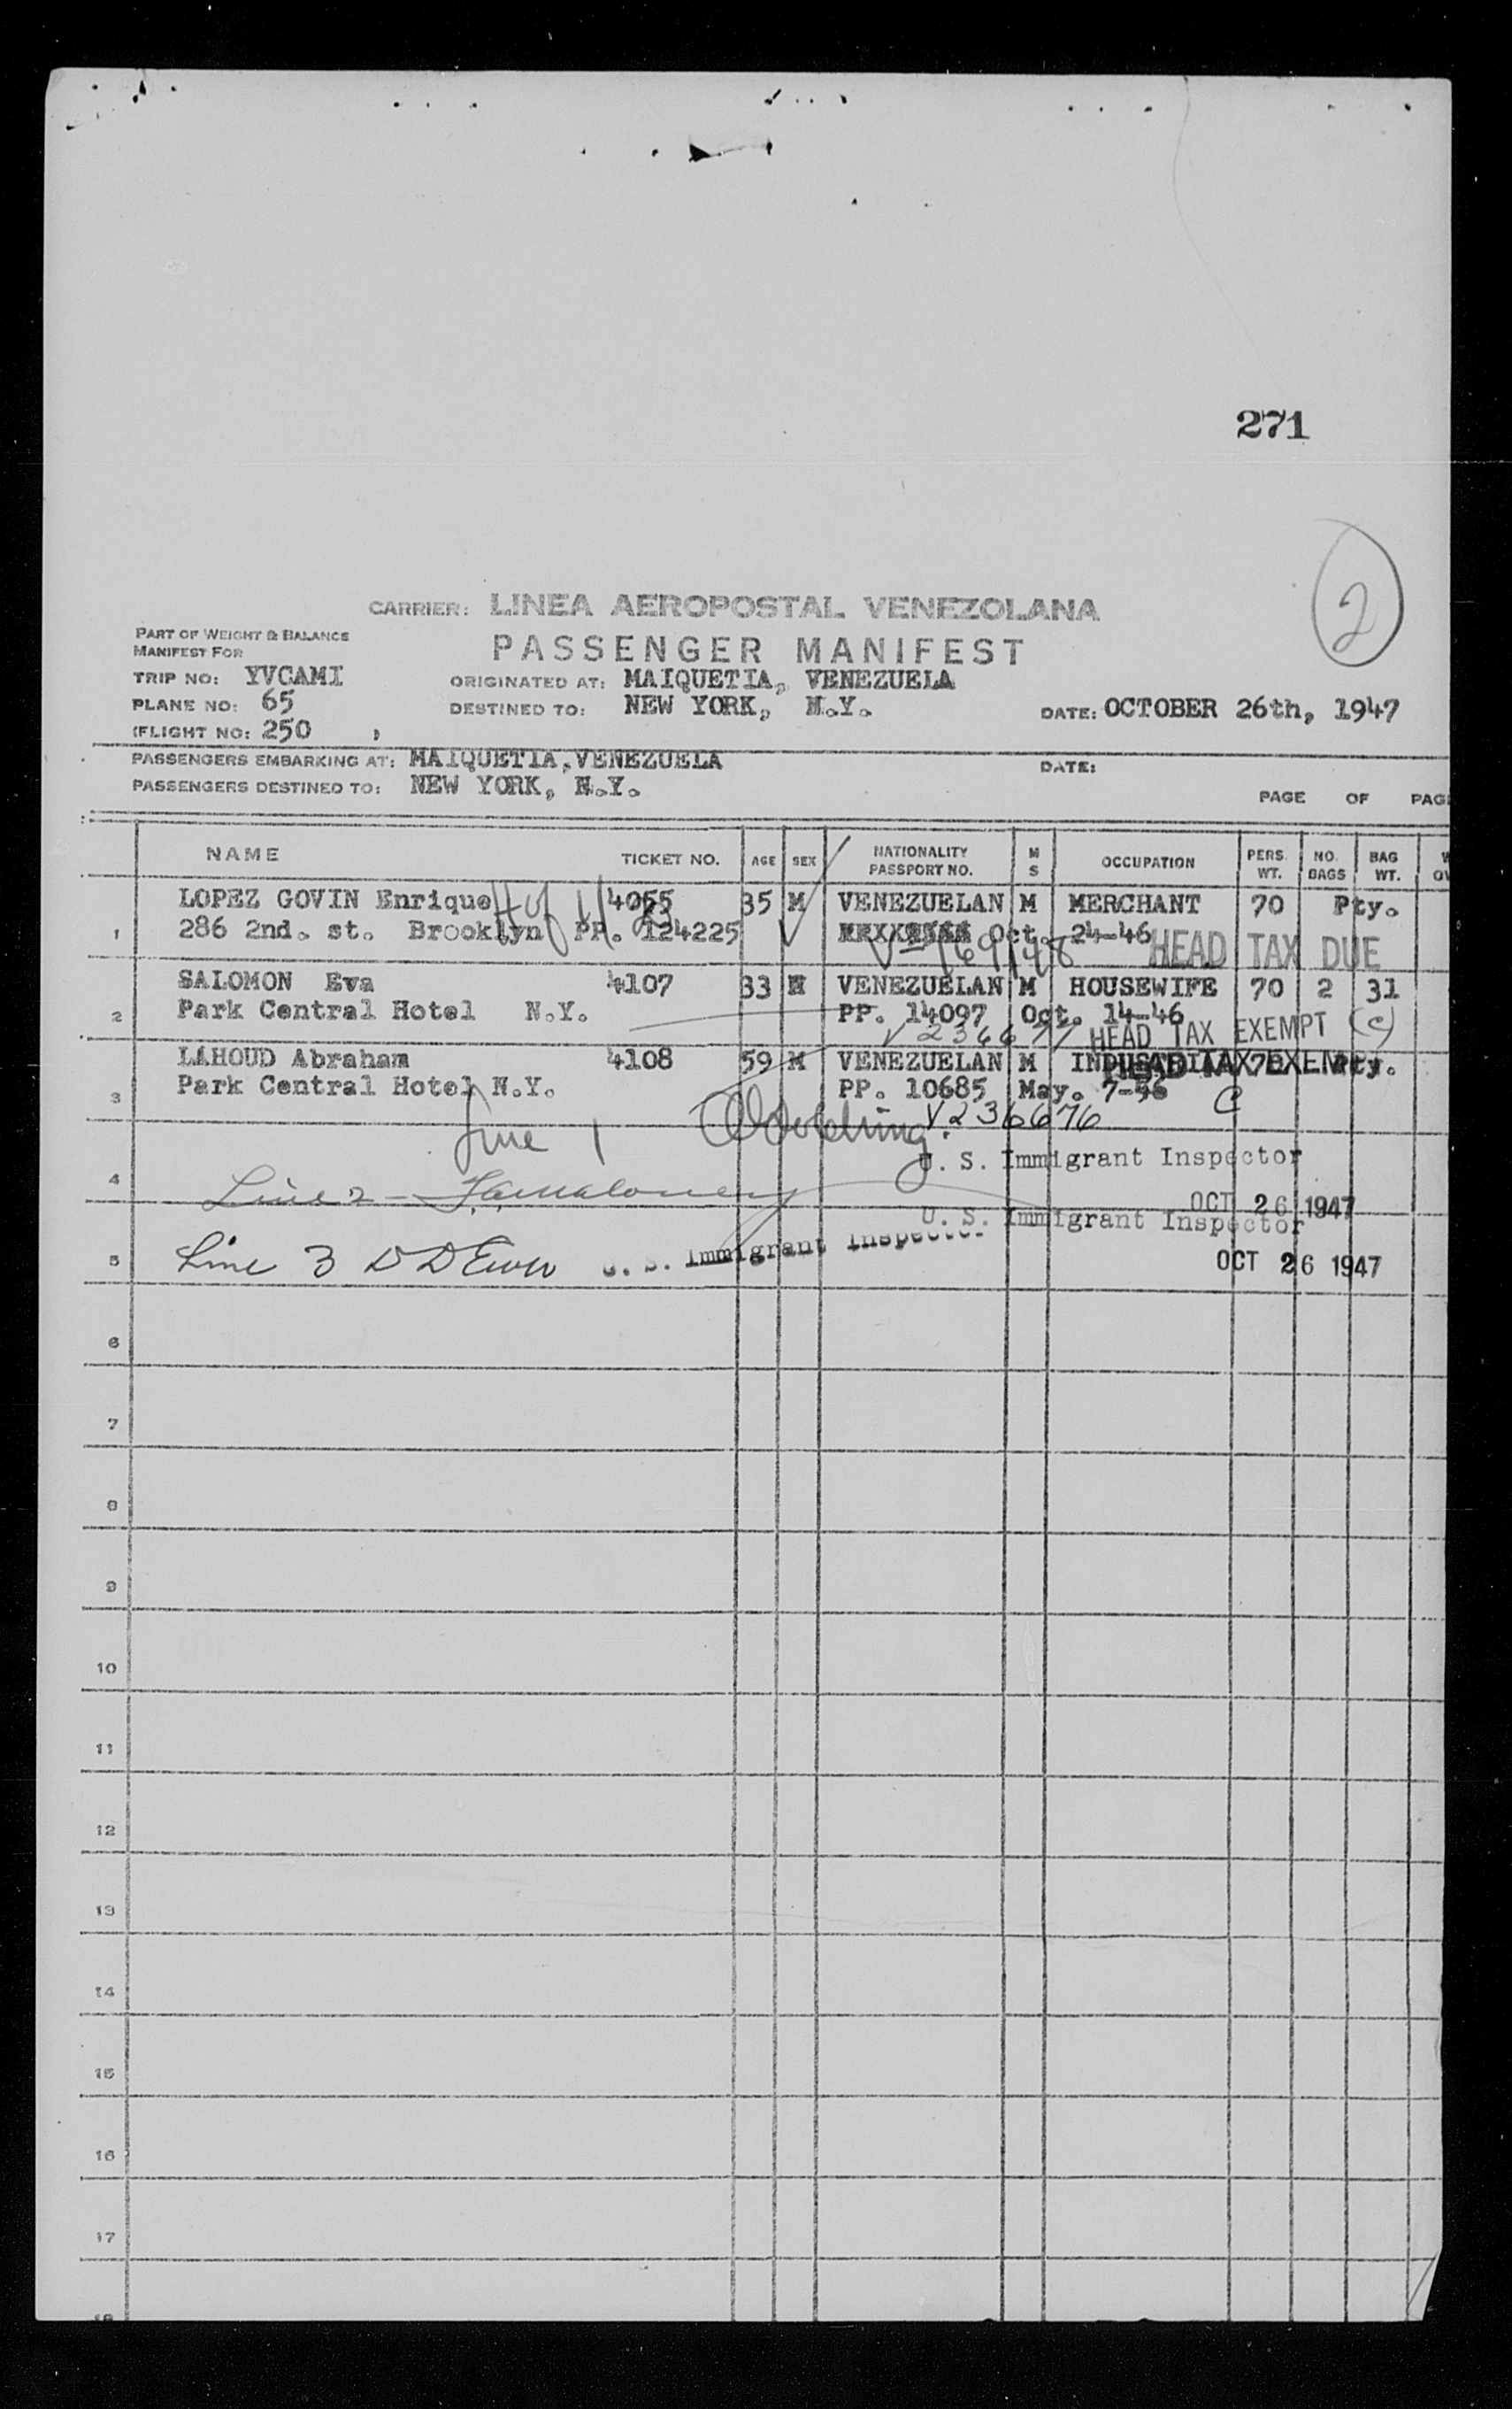 271
2
CARRIER: LINEA AEROPOSTAL VENEZOLANA
PART OF WEIGHT & BALANCE
MANIFEST FOR
PASSENGER MANIFEST
TRIP NO: YVCAMI
ORIGINATED AT: MAIQUETIA, VENEZUELA
PLANE NO: 65
DESTINED TO: NEW YORK, N.Y.
DATE: OCTOBER 26th, 1947
(FLIGHT NO: 250 )
PASSENGERS EMBARKING AT: MAIQUETIA, VENEZUELA DATE:
PASSENGERS DESTINED TO: NEW YORK, N.Y.
PAGE OF PAG
NAME TICKET NO. AGE SEX NATIONALITY PASSPORT NO. M S OCCUPATION PERS. WT. NO. BAGS BAG WT.
LOPEZ GOVIN Enrique 4055 35 M VENEZUELAN M MERCHANT 70 Pty.
1 286 2nd. st. Brooklyn PP. 124225 Oct. 24-46
HEAD TAX DUE
SALOMON Eva 4107 33 VENEZUELAN M HOUSEWIFE 70 2 31
2 Park Central Hotel N.Y. PP. 14097 Oct. 14-46
V236677 HEAD TAX EXEMPT (c)
LAHOUD Abraham 4108 59 M VENEZUELAN M 70 Pty.
HEAD TAX EXEMPT
3 Park Central Hotel N.Y. PP. 10685 May. 7-
V236676 C
Line 1
U. S. Immigrant Inspector
4
Line 2
OCT 26 1947
U. S. Immigrant Inspector
5
Line 3
U. S. Immigrant Inspector
OCT 26 1947
6
7
8
9
10
11
12
13
14
15
16
17